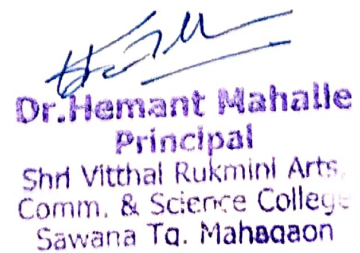 Dr.Hemant Mahalle
Principal
Shri Vitthal Rukmini Arts,
Comm. & Science College
Sawana Tq. Mahagaon